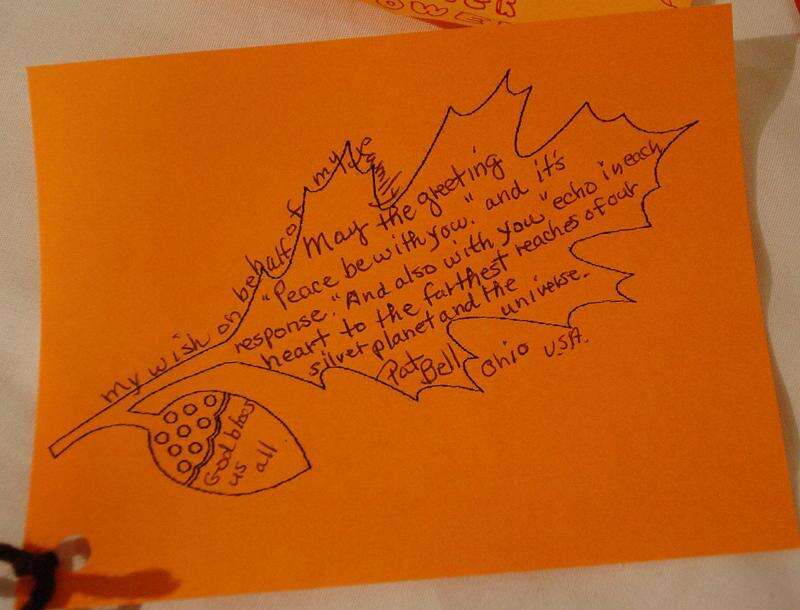 OWER
my wish on behalf of my
May the greeting
"Peace be with you." and it's
response. "And also with you" echo in each
heart to the farthest reaches of our
silver planet and the universe.
Pat Bell Ohio U.S.A.
God bless
us all